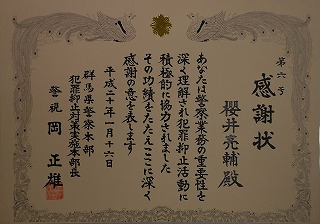 第六号
感謝状
櫻井亮輔殿
あなたは警察業務の重要性を
深く理解され犯罪抑止活動に
積極的に協力されました
その功績をたたえここに深く
感謝の意を表します
平成二十年一月十六日
群馬県警察本部
犯罪抑止対策実施本部長
警視 岡正雄